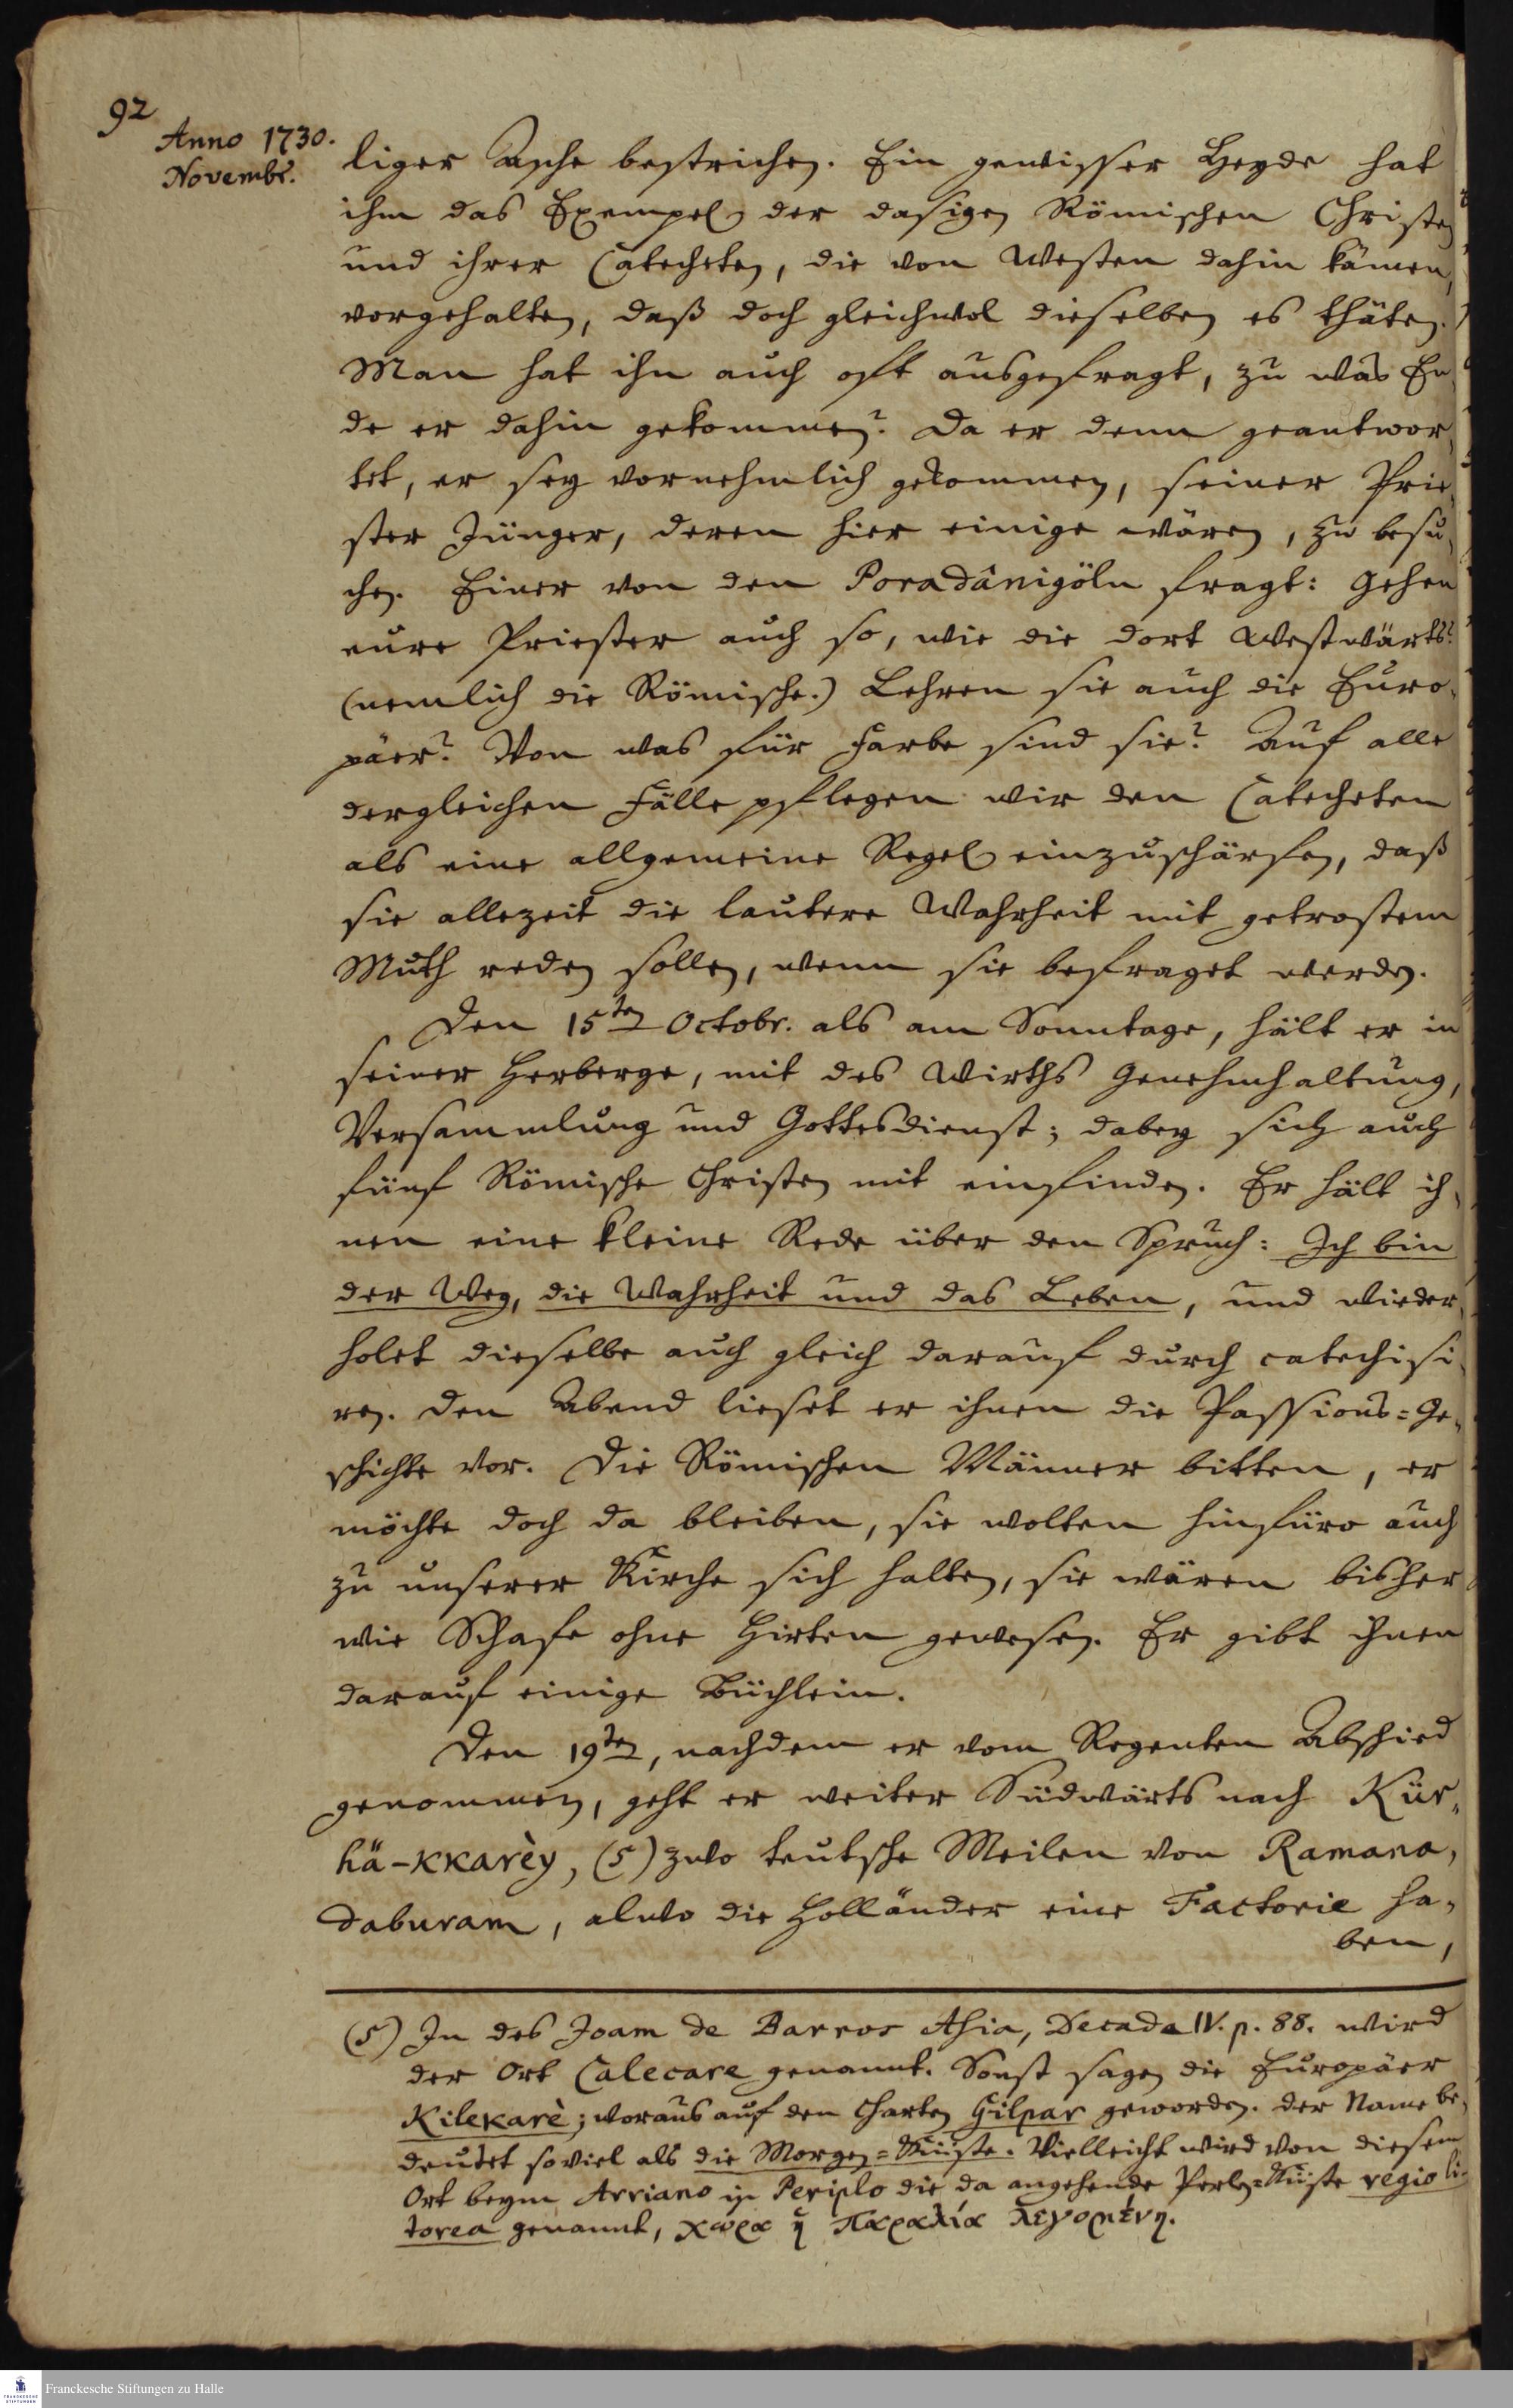 92
Anno 1730.
Novembr.
liger Asche bestrichen. Ein gewisser Heyde hat
ihm das Exempel der dasigen Römischen Christen
und ihrer Catecheten, die von Westen dahin kämen,
vorgehalten, daß doch gleichwol dieselben es thäten.
Man hat ihn auch oft ausgefragt, zu was En-
de er dahin gekommen? Da er denn geantwor-
tet, er sey vornehmlich gekommen, seiner Prie-
ster Jünger, deren hier einige wären, zu besu-
chen. Einer von den Poradânigöln fragt: Gehen
eure Priester auch so, wie die dort Westwärts?
(nemlich die Römische.) Lehren sie auch die Euro-
päer? Von was für Farbe sind sie? Auf alle
dergleichen Fälle pflegen wir den Catecheten
als eine allgemeine Regel einzuschärfen, daß
sie allezeit die lautere Wahrheit mit getrostem
Muth reden sollen, wenn sie befraget werden.
Den 15ten Octobr. als am Sonntage, hält er in
seiner Herberge, mit des Wirths Genehmhaltung,
Versammlung und Gottesdienst; dabey sich auch
fünf Römische Christen mit einfinden. Er hält ih-
nen eine kleine Rede über den Spruch: Ich bin
der Weg, die Wahrheit und das Leben, und wieder-
holet dieselbe auch gleich darauf durch catechisi-
ren. Den Abend lieset er ihnen die Passions=Ge-
schichte vor. Die Römischen Männer bitten, er
möchte doch da bleiben, sie wolten hinfüro auch
zu unserer Kirche sich halten, sie wären bisher
wie Schafe ohne Hirten gewesen. Er gibt ihnen
darauf einige Büchlein.
Den 19ten, nachdem er vom Regenten Abschied
genommen, geht er weiter Südwärts nach Kür-
hä-kkarèy, (5) zwo teutsche Meilen von Ramana-
daburam, alwo die Holländer eine Factorie ha-
ben,
(5) In des Joam de Barros Asia, Decada IV. p. 88. wird
der Ort Calecare genannt. Sonst sagen die Europäer
Kilekarè; woraus auf den Charten Gilpar geworden. Der Name be-
deutet soviel als die Morgen=Küste. Vielleicht wird von diesem
Ort beym Arriano in Periplo die da angehende Perlen=Küste regio li-
torea genannt, χώρα ἡ Παραλία λεγομένη.